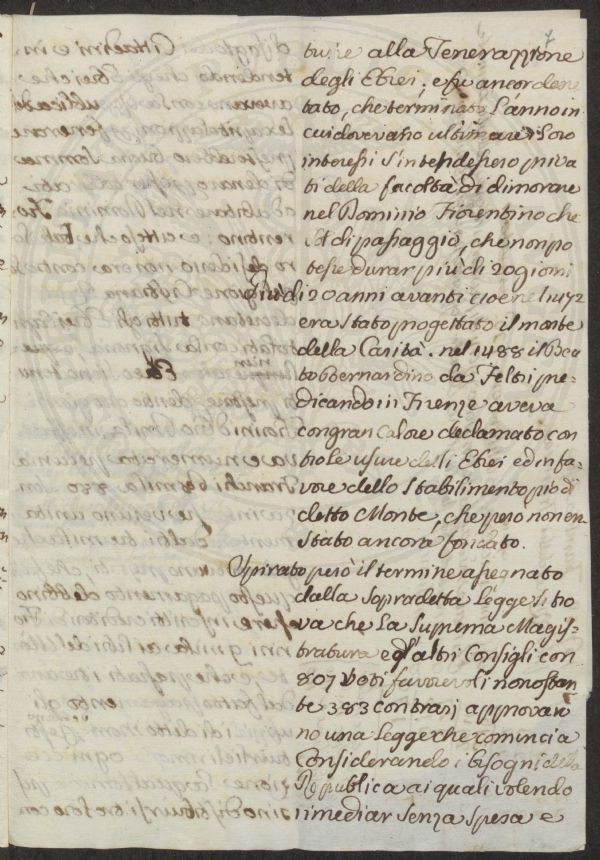 7
ture alla Fenerazione
degli Ebrei; e fu ancor decre
tato, che terminato L'anno in
cui dovevano ultimare i Loro
interessi s'intendessero priva
ti della facoltà di dimorare
nel Dominio Fiorentino che
di passaggio, che non po
tesse durar più di 20 giorni
Più di 20 anni avanti cioè nel 1472
era stato progettato il monte
della Carità. nel 1488 il Bea
to Bernardino da Feltri pre-
dicando in Firenze aveva
con gran calore declamato con
tro le usure delli Ebrei ed in fa-
vore dello Stabilimento pio di
detto Monte, che però non era
stato ancora fondato.
Spirato però il termine assegnato
dalla Sopradetta Legge si tro
va che La Suprema Magis-
tratura e gl'altri Consigli con
807 Voti favorevoli nonostan
te 383 contrarj approvaro
no una Legge che comincia
Considerando i bisogni della
Republica ai quali volendo
rimediar senza spesa e